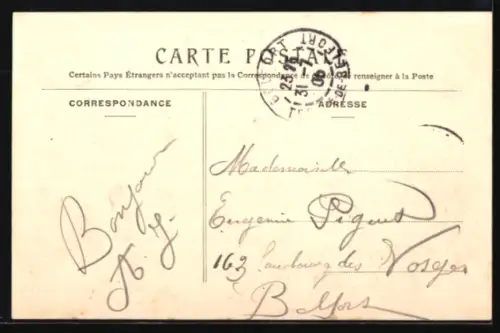 CARTE POSTALE
Certains Pays Étrangers n'acceptant pas la Correspondance de renseigner à la Poste
CORRESPONDANCE
ADRESSE
BELFORT
23 25
31 - 7
06
Bonjour
Mademoiselle
Eugenie
163 Faubourg des Vosges
Belfort